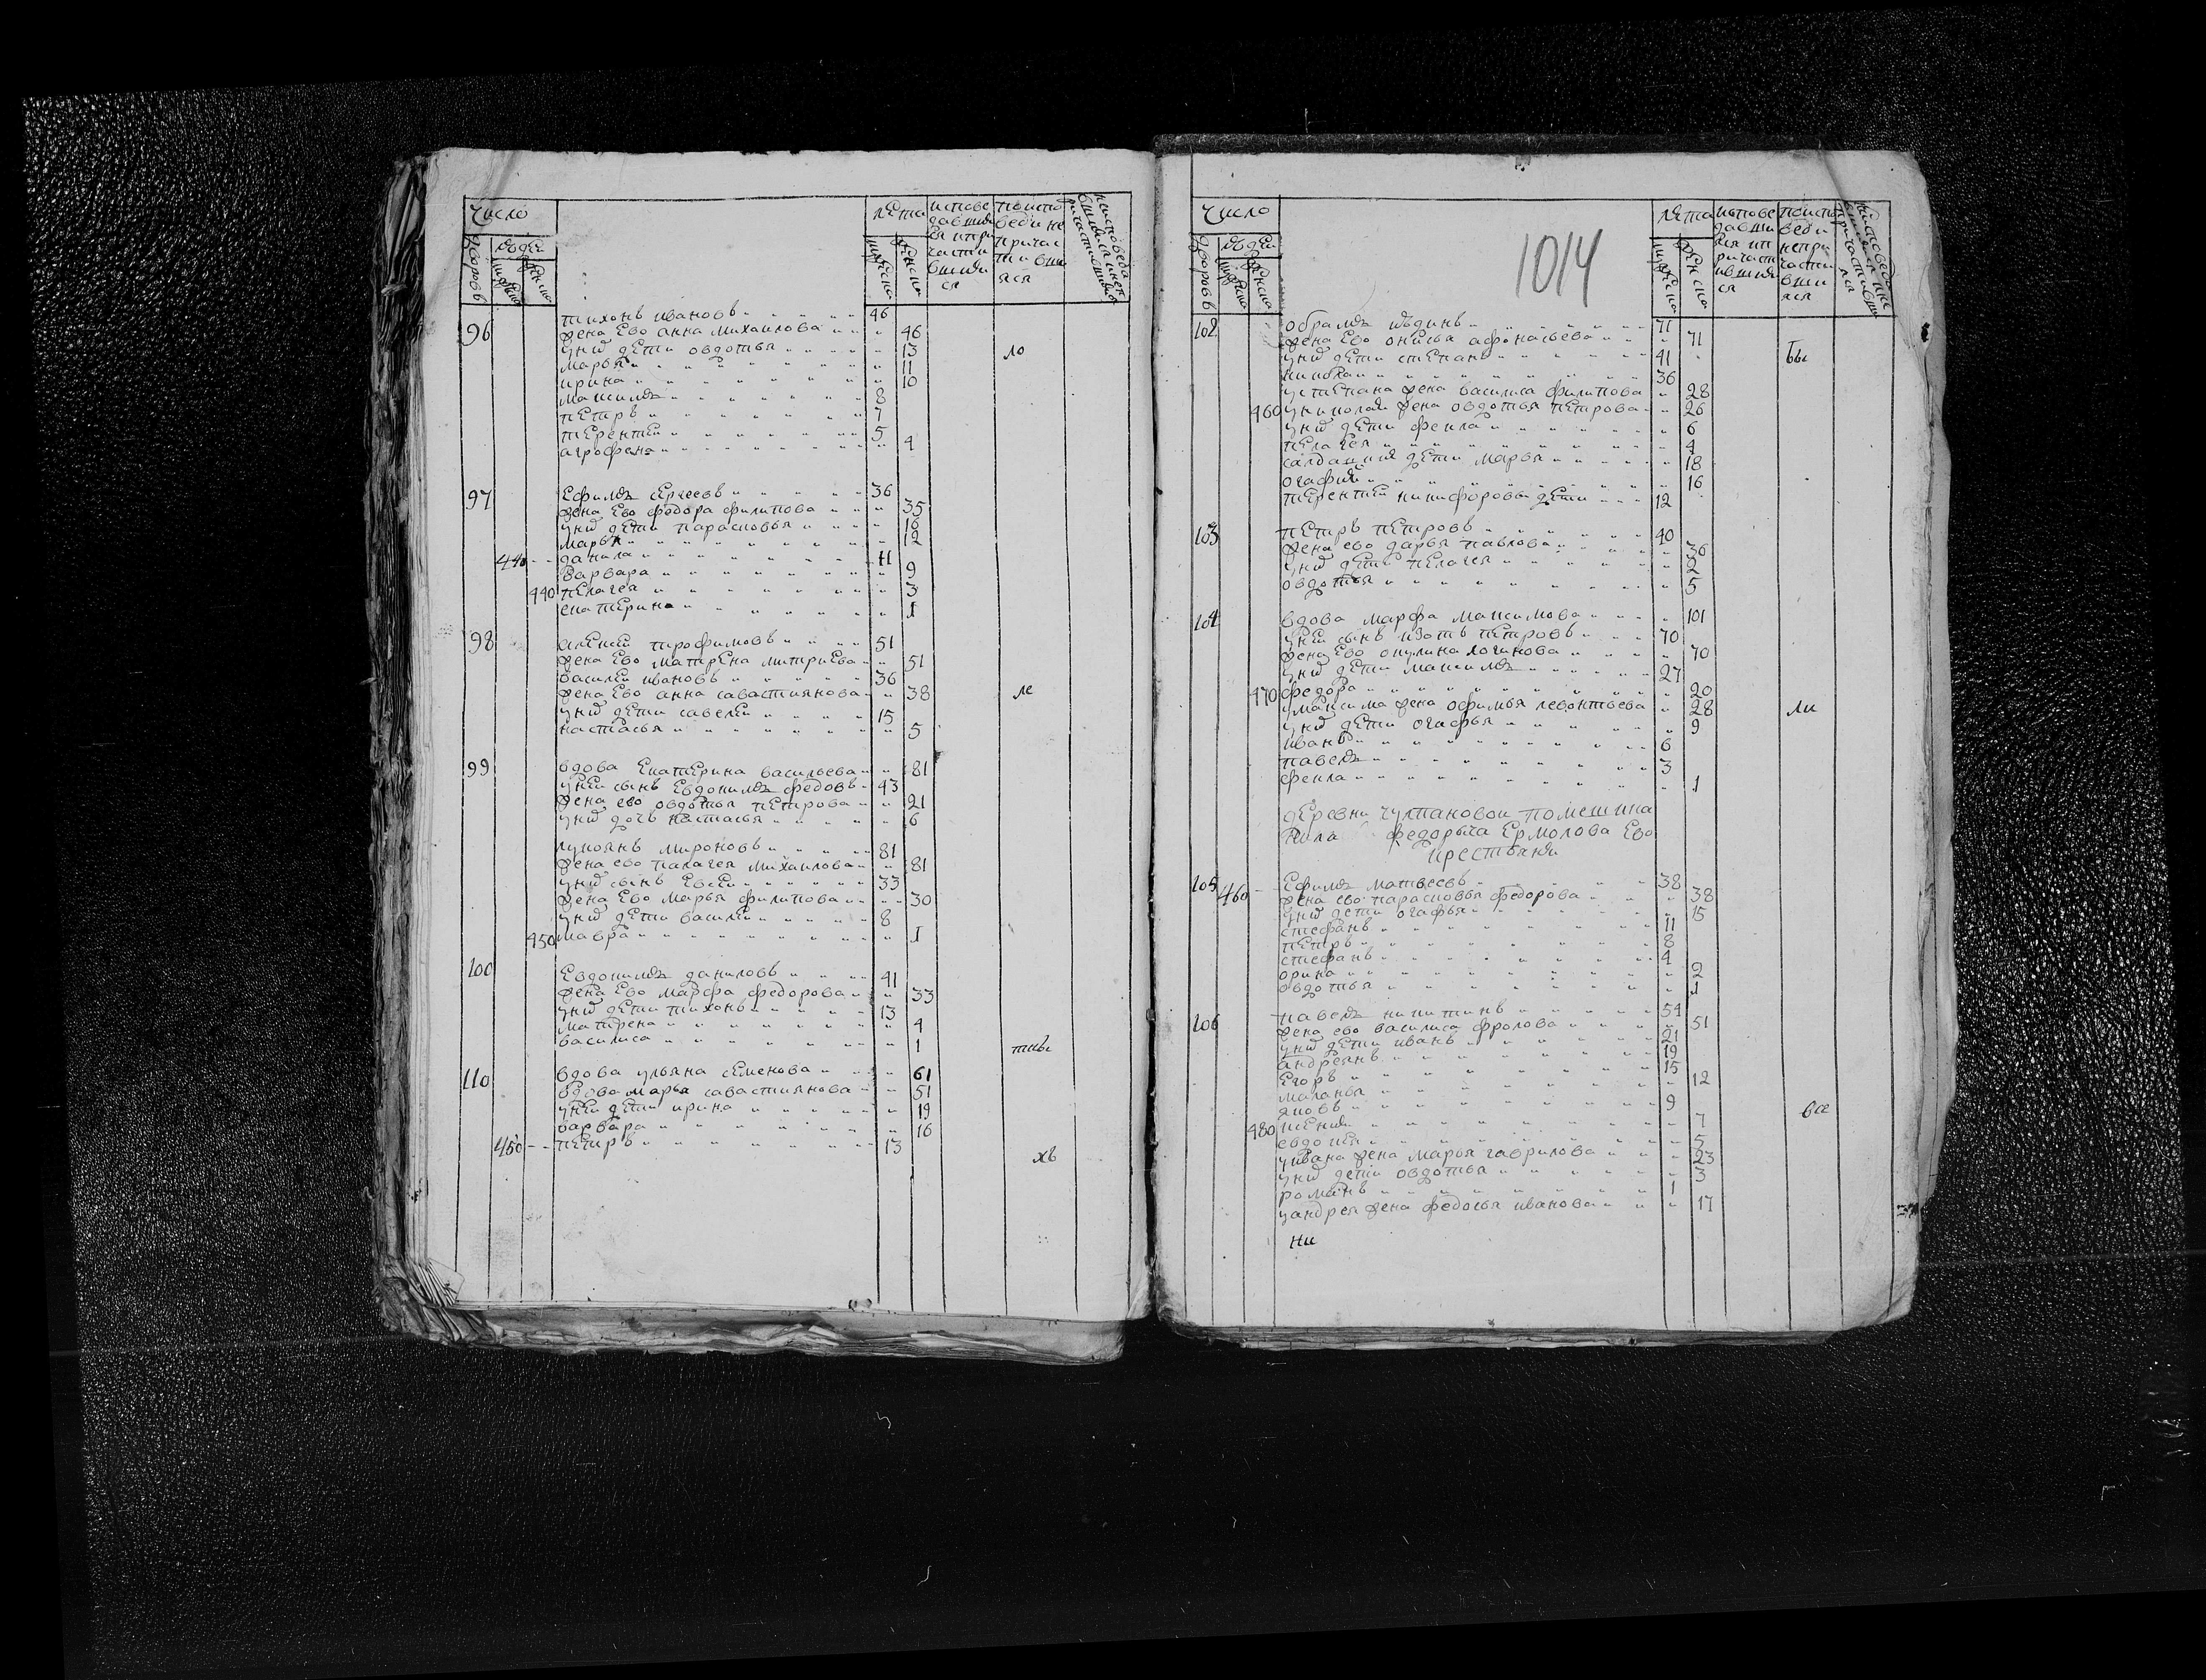 Число
лѣта
дворовъ
людей
мужеска
женска
мужеска
женска
исповедавшияся и причастившияся
по исповеди не причастившияся
96 тихонъ ивановъ 46
жена Ево анна михаилова 46
у них дети овдотья 13 ло
марья 11
ирина 10
максимъ 8
петръ 7
терентеи 5
агрофена 4
97 Ефимъ сергеевъ 36
жена Ево федора филипова 35
у них дети парасковья 16
марья 12
440 данила 11
варвара 9
440 пелагея 3
екатерина 1
98 алексеи трофимовъ 51
жена Ево матрена митриева 51
василеи ивановъ 36
жена Ево анна савастиянова 38 ле
у них дети савелеи 15
настасья 5
99 вдова Екатерина васильева 81
у неи сынъ Евдокимъ федовъ 43
жена ево овдотья петрова 21
у них дочь настасья 6
лукоянъ мироновъ 81
жена ево палагея михаилова 81
у них сынъ Евсеи 33
жена Ево марья филипова 30
у них дети василеи 8
450 мавра 1
100 Евдокимъ даниловъ 41
жена Ево марфа федорова 33
у них дети тихонъ 13
матрена 4
василиса 1
110 вдова ульяна семенова 61
вдова марья савастиянова 51
у неи дети ирина 19
варвара 16
450 петръ 13
хъ
Число
1014
лѣта
дворовъ
людеи
мужеска
женска
мужеска
женска
исповедавшияся и причастившияся
по исповеди не причастившияся
102 обрамъ 71
жена Ево онисья афонасьева 71
у них дети степанъ 41
николаи 36
у степана жена василиса филипова 28
460 у николаи жена овдотья петрова 26
у них дети фекла 6
пелагея 4
салдацкия дети марья 18
огафия 16
терентеи никифоровы дети 12
103 петръ петровъ 40
жена ево дарья павлова 36
у них дети пелагея 2
овдотья 5
104 вдова марфа максимова 101
у неи сынъ изотъ петровъ 70
жена Ево окулина логинова 70
у них дети максимъ 27
470 федора 20
у максима жена офимья левонтьева 28 ли
у них дети огафья 9
иванъ 6
павелъ 3
фекла 1
деревни чултановои помешика
федорыча Ермолова Ево
крестьяни
105 460 Ефимъ матвеевъ 38
жена ево парасковья федорова 38
у них дети огафья 15
стефанъ 11
петръ 8
стефанъ 4
орина 2
овдотья 1
106 павелъ никитинъ 54
жена ево василиса фролова 51
у них дети иванъ 21
андреянъ 19
Егоръ 15
маланья 12
яковъ 9 все
480 ксения 7
евдокея 5
у ивана жена марья гаврилова 23
у них дети овдотья 3
романъ 1
у андрея жена федосья иванова 17
ни